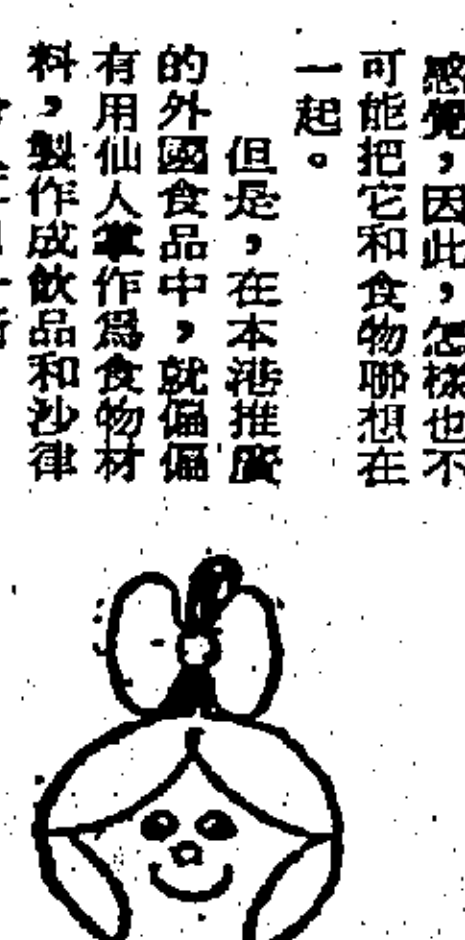 感覺，因此，怎樣也不
可能把它和食物聯想在
一起。
但是，在本港推廣
的外國食品中，就偏偏
有用仙人掌作爲食物材
料，製作成飲品和沙律